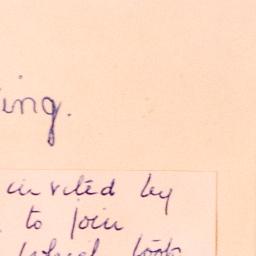 ing.
invited by
to join
which took